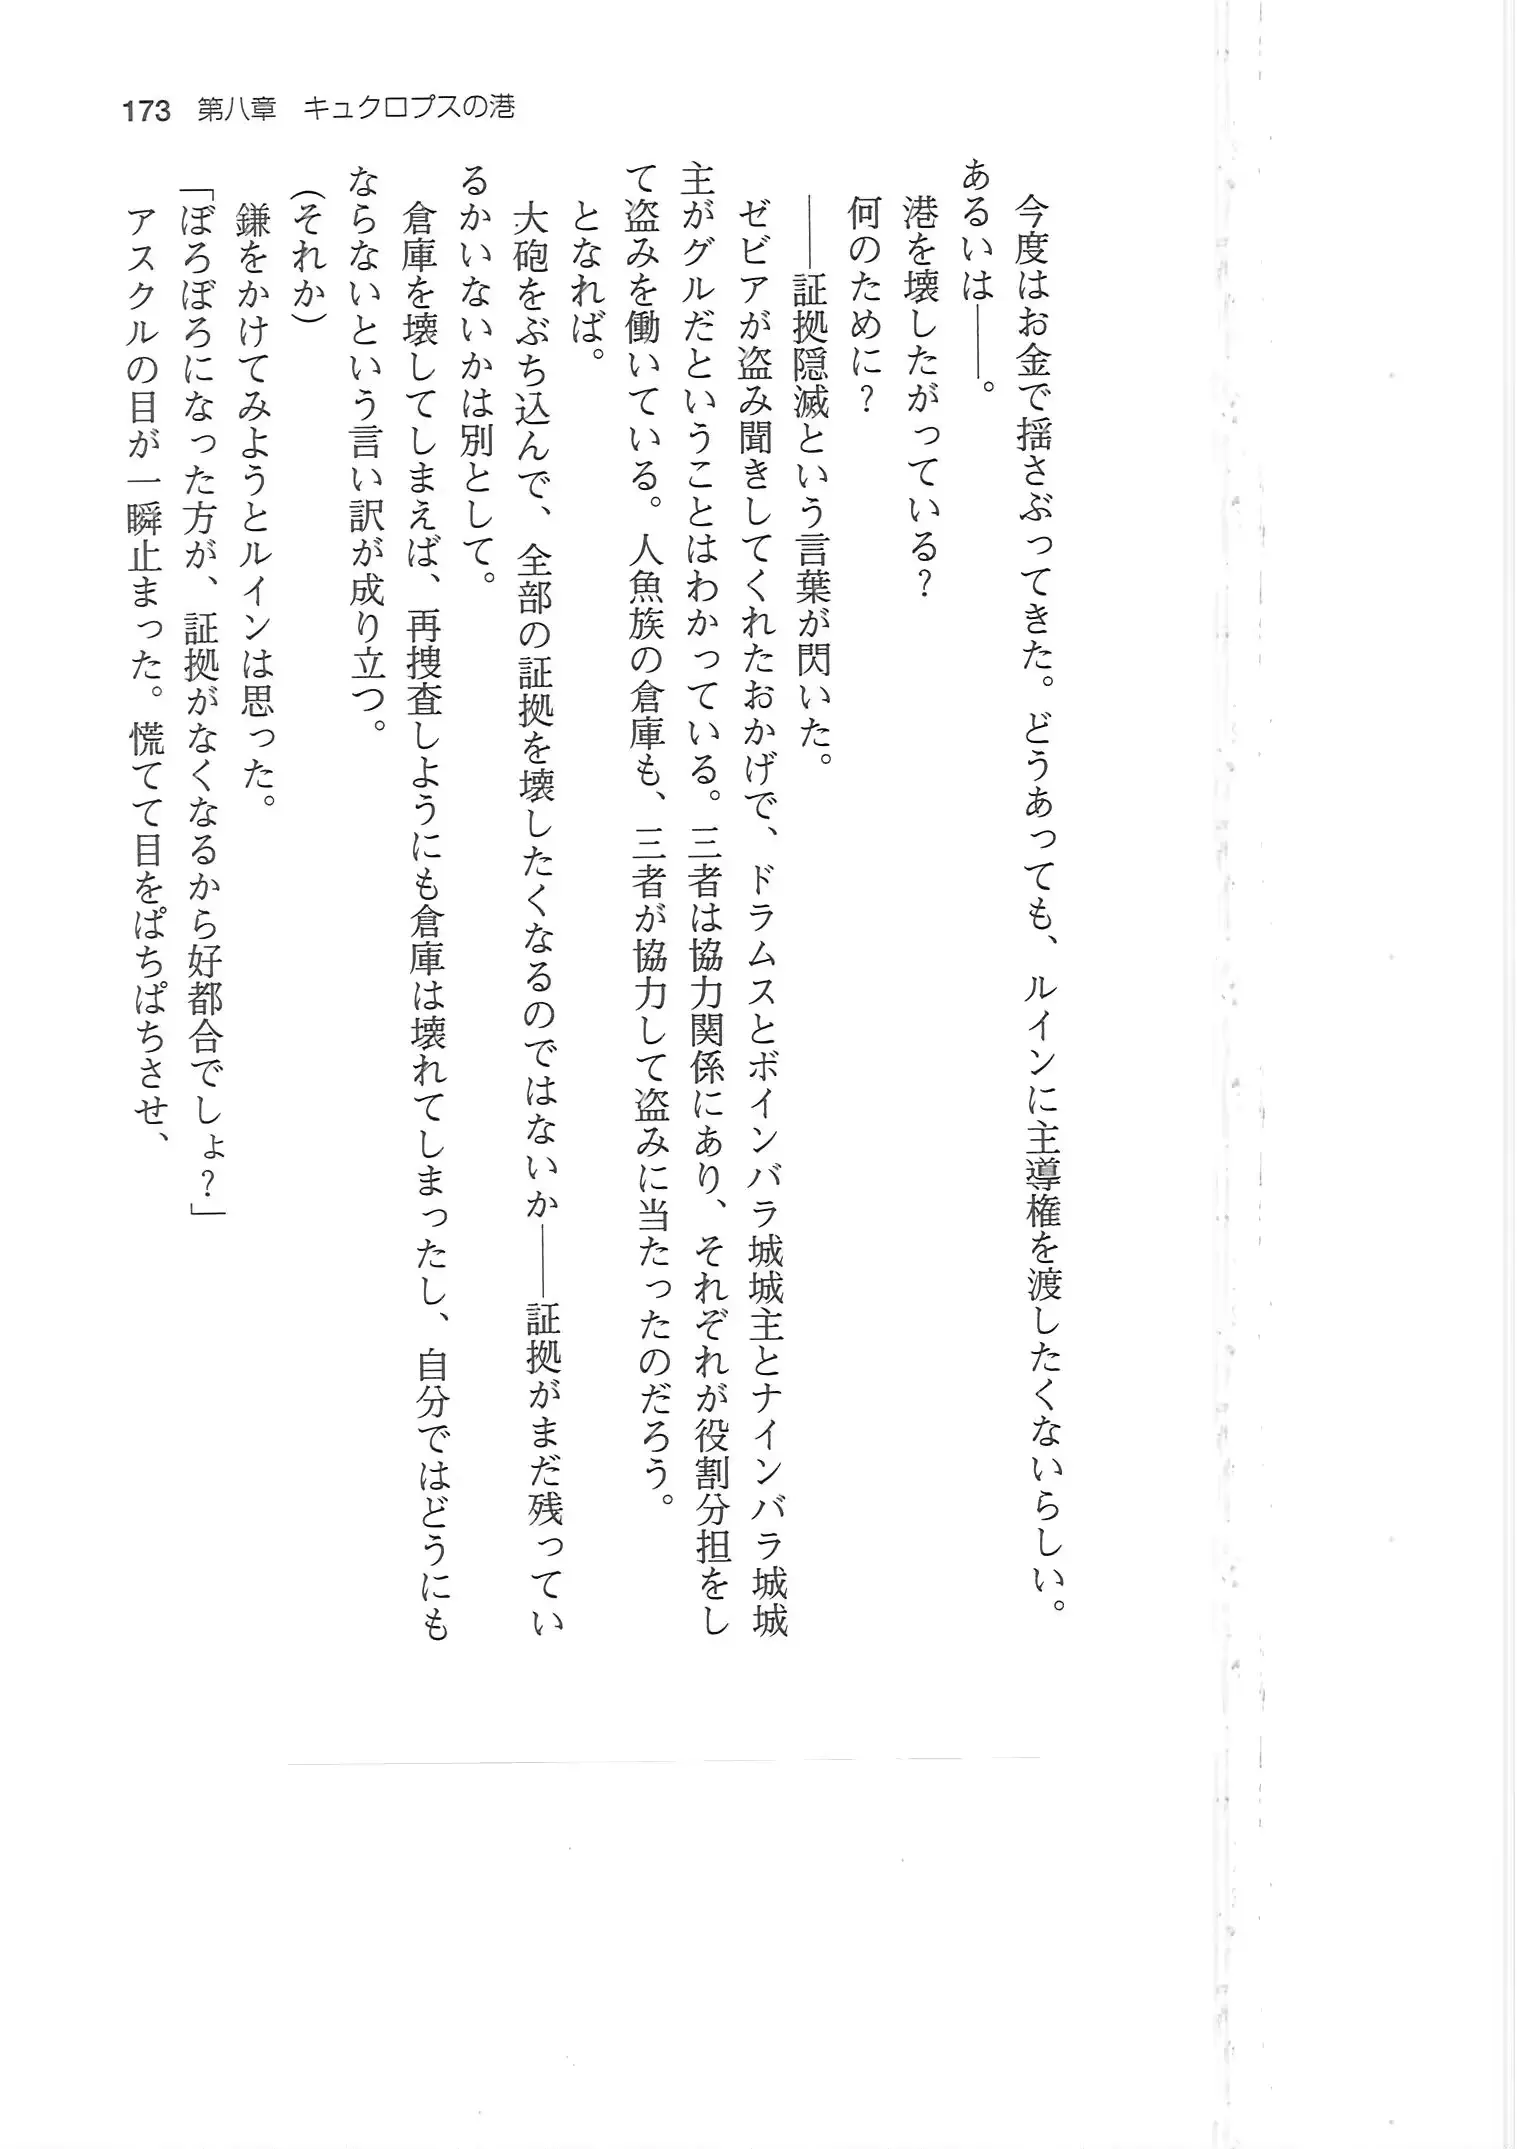 173 第八章 キュクロプスの港
　今度はお金で揺さぶってきた。どうあっても、ルインに主導権を渡したくないらしい。
あるいは――。
　港を壊したがっている？
　何のために？
　――証拠隠滅という言葉が閃いた。
　ゼビアが盗み聞きしてくれたおかげで、ドラムスとボインバラ城城主とナインバラ城城
主がグルだということはわかっている。三者は協力関係にあり、それぞれが役割分担をし
て盗みを働いている。人魚族の倉庫も、三者が協力して盗みに当たったのだろう。
　となれば。
　大砲をぶち込んで、全部の証拠を壊したくなるのではないか――証拠がまだ残ってい
るかいないかは別として。
　倉庫を壊してしまえば、再捜査しようにも倉庫は壊れてしまったし、自分ではどうにも
ならないという言い訳が成り立つ。
（それか）
　鎌をかけてみようとルインは思った。
「ぼろぼろになった方が、証拠がなくなるから好都合でしょ？」
　アスクルの目が一瞬止まった。慌てて目をぱちぱちさせ、